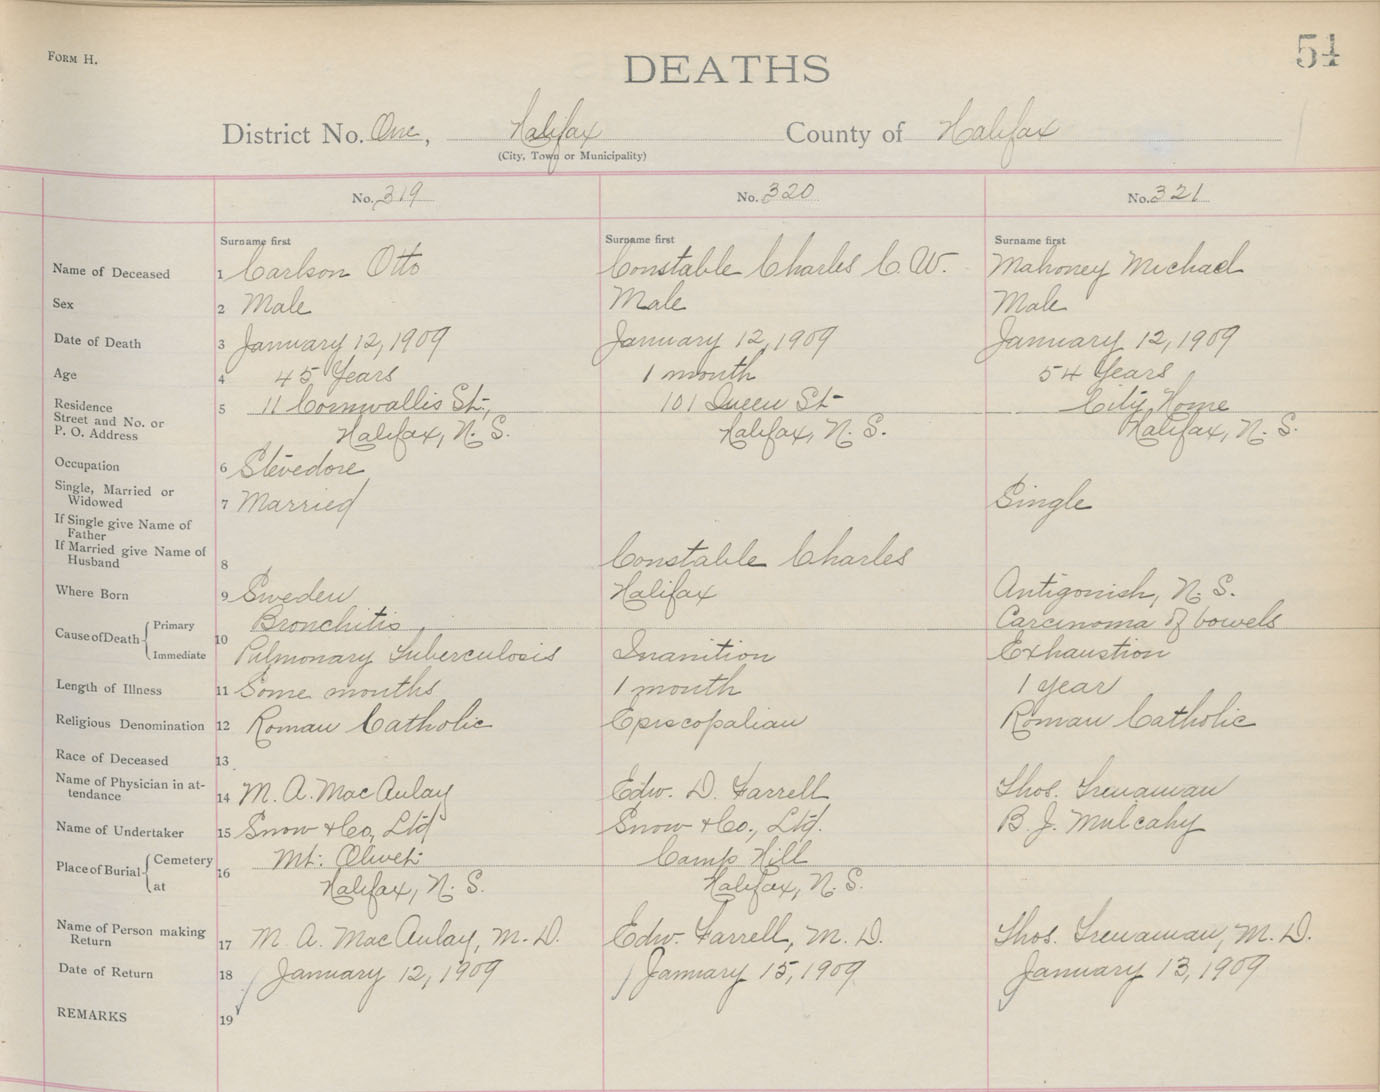 FORM H.
54
DEATHS
District No. One, Halifax County of Halifax
(City, Town or Municipality)
No. 319 No. 320 No. 321
Surname first Surname first Surname first
Name of Deceased 1 Carlson Otto Constable Charles C. W. Mahoney Michael
Sex 2 Male Male Male
Date of Death 3 January 12, 1909 January 12, 1909 January 12, 1909
Age 4 45 Years 1 month 54 Years
Residence 5 11 Cornwallis St., 101 Queen St City Home
Street and No. or
P. O. Address Halifax, N. S. Halifax, N. S. Halifax, N. S.
Occupation 6 Stevedore
Single, Married or
Widowed 7 Married Single
If Single give Name of
Father
If Married give Name of
Husband 8 Constable Charles
Where Born 9 Sweden Halifax Antigonish, N. S.
Cause of Death Primary Bronchitis, Carcinoma of bowels
10 Immediate Pulmonary Tuberculosis Inanition Exhaustion
Length of Illness 11 Some months 1 month 1 year
Religious Denomination 12 Roman Catholic Episcopalian Roman Catholic
Race of Deceased 13
Name of Physician in at-
tendance 14 M. A. MacAulay Edw. D. Farrell Thos. Trenaman
Name of Undertaker 15 Snow & Co, Ltd Snow & Co., Ltd. B. J. Mulcahy
Place of Burial Cemetery Mt. Olivet Camp Hill
16 at Halifax, N. S. Halifax, N. S.
Name of Person making
Return 17 M. A. MacAulay, M. D. Edw. Farrell, M. D. Thos. Trenaman, M. D.
Date of Return 18 January 12, 1909 January 15, 1909 January 13, 1909
REMARKS 19